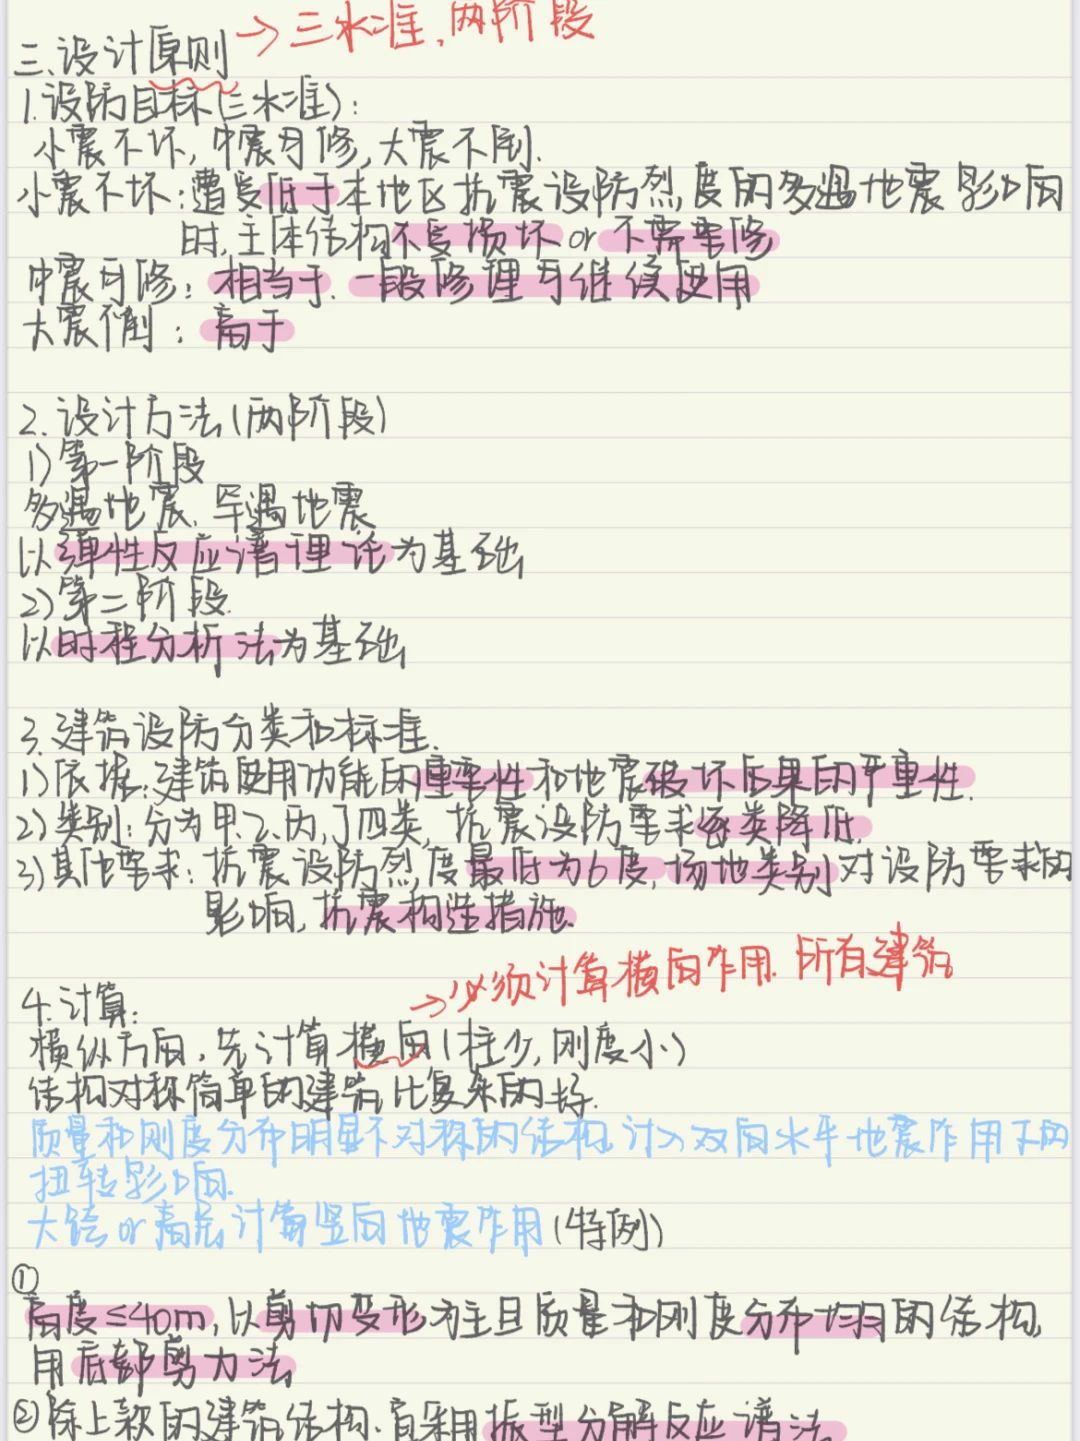 三.设计原则 → 三水准,两阶段
1.设防目标(三水准):
小震不坏,中震可修,大震不倒.
小震不坏:遭受低于本地区抗震设防烈度的多遇地震影响
时,主体结构不受损坏or不需要修
中震可修:相当于.一段修理可继续使用
大震不倒:高于
2.设计方法(两阶段)
1)第一阶段
多遇地震.罕遇地震
以弹性反应谱理论为基础
2)第二阶段.
以时程分析法为基础
3.建筑设防分类和标准.
1)依据:建筑使用功能的重要性和地震破坏后果的严重性.
2)类别:分为甲.乙.丙.丁四类,抗震设防要求逐类降低.
3)其他要求:抗震设防烈度最低为6度,场地类别对设防要求的
影响,抗震构造措施.
→必须计算横向作用.所有建筑
4.计算:
横纵方向,先计算横向(柱少,刚度小)
结构对称简单的建筑比复杂的好.
质量和刚度分布明显不对称的结构.计入双向水平地震作用下的
扭转影响.
大跨or高层计算竖向地震作用(特例)
①
高度≤40m,以剪切变形为主且质量和刚度分布均匀的结构,
用底部剪力法
②除上款的建筑结构.宜采用振型分解反应谱法